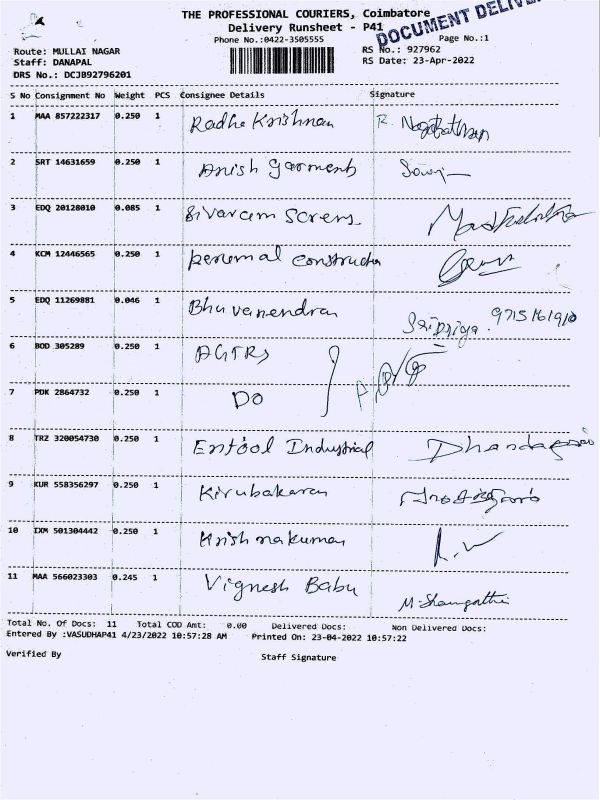 THE PROFESSIONAL COURIERS, Coimbatore
DOCUMENT
Delivery Runsheet - P41
Phone No.:0422-3505555
Page No.:1
Route: MULLAI NAGAR
RS No.: 927962
Staff: DANAPAL
RS Date: 23-Apr-2022
DRS No.: DCJB92796201
S No Consignment No Weight PCS Consignee Details Signature
1 MAA 857222317 0.250 1 Radhe Krishnan R.
2 SRT 14631659 0.250 1 Anish garments
3 EDQ 20128010 0.085 1 Sivaram screws
4 KCM 12446565 0.250 1 perumal
5 EDQ 11269881 0.046 1 Bhuvanendran
6 BOD 305289 0.250 1 AGTRS
7 PDK 2864732 0.250 1 DO
8 TRZ 320054730 0.250 1 Entool Industrial
9 KUR 558356297 0.250 1 Kirubakaran
10 IXM 501304442 0.250 1 Krishnakumar
11 MAA 566023303 0.245 1 Vignesh Babu
Total No. Of Docs: 11 Total COD Amt: 0.00 Delivered Docs: Non Delivered Docs:
Entered By :VASUDHAP41 4/23/2022 10:57:28 AM Printed On: 23-04-2022 10:57:22
Verified By Staff Signature